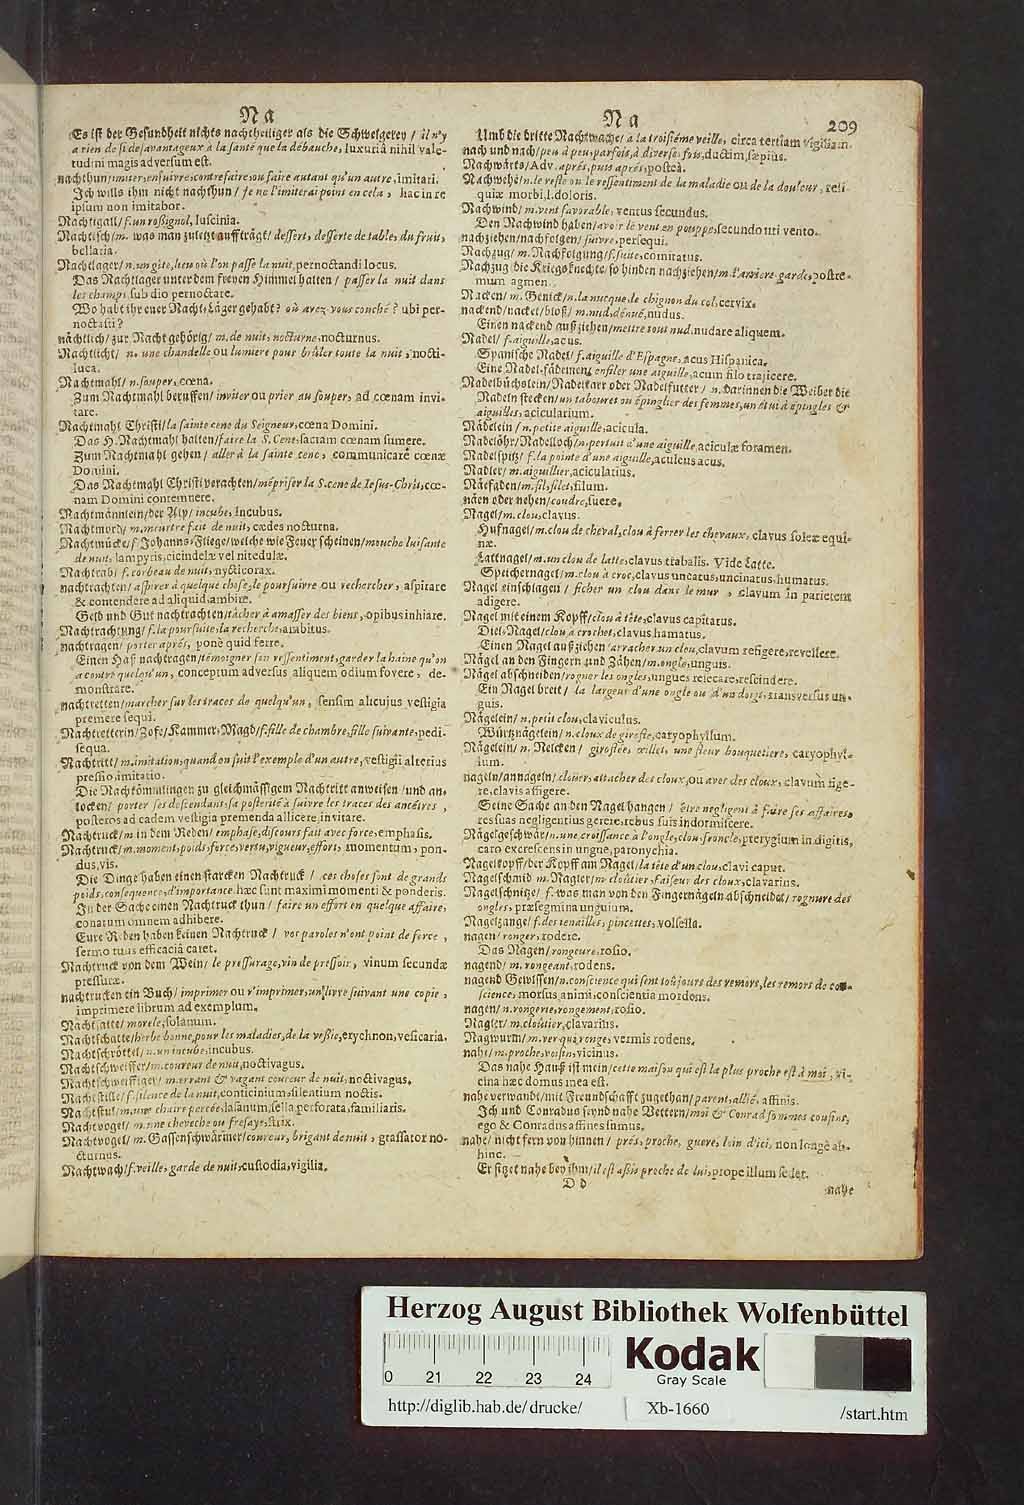 Na
Es ist der Gesundheit nichts nachtheiliger als die Schwelgerey / il n'y
a rien de si desavantageux à la santé que la débauche, luxuriâ nihil vale-
tudini magis adversum est.
nachthun / imiter, ensuivre, contrefaire ou faire autant qu'un autre, imitari.
Ich wills ihm nicht nachthun / je ne l'imiterai point en cela, hac in re
ipsum non imitabor.
Nachtigall / f. un roßignol, luscinia.
Nachtisch / m. was man zuletzt aufftrágt / dessert, desserte de table, du fruit,
bellaria.
Nachtlager / n. un gîte, lieu où l'on passe la nuit, pernoctandi locus.
Das Nachtlager unter dem freyen Himmel halten / passer la nuit dans
les champs, sub dio pernoctare.
Wo habt ihr euer Nacht-Läger gehabt? où avez vous couché? ubi per-
noctasti?
nächtlich / zur Nacht gehörig / m. de nuit, nocturne, nocturnus.
Nachtlicht / n. une chandelle ou lumiere pour brûler toute la nuit, nocti-
luca.
Nachtmahl / n. souper, cœna.
Zum Nachtmahl beruffen / inviter ou prier au souper, ad cœnam invi-
tare.
Nachtmahl Christi / la sainte cene du Seigneur, cœna Domini.
Das H. Nachtmahl halten / faire la S. Cene, sacram cœnam sumere.
Zum Nachtmahl gehen / aller à la sainte cene, communicare cœnæ
Domini.
Das Nachtmahl Christi verachten / mépriser la S. cene de Jesus-Christ, cœ-
nam Domini contemnere.
Nachtmännlein / der Alp / incube, Incubus.
Nachtmord / m. meurtre fait de nuit, cædes nocturna.
Nachtmücke / f. Johanns-Fliege / welche wie Feuer scheinen / mouche luisante
de nuit, lampyris, cicindelæ vel nitedulæ.
Nachtrab / f. corbeau de nuit, nycticorax.
nachtrachten / aspirer à quelque chose, le poursuivre ou rechercher, aspirare
& contendere ad aliquid ambire.
Geld und Gut nachtrachten / tâcher à amasser des biens, opibus inhiare.
Nachtrachtung / f. la poursuite, la recherche, ambitus.
nachtragen / porter aprés, ponè quid ferre.
Einen Haß nachtragen / témoigner son ressentiment, garder la haine qu'on
a contre quelqu'un, conceptum adversus aliquem odium fovere, de-
monstrare.
nachtretten / marcher sur les traces de quelqu'un, sensim alicujus vestigia
premere sequi.
Nachtretterin / Zofe / Kammer-Magd / f. fille de chambre, fille suivante, pedi-
sequa.
Nachtritt / m. imitation, quand on suit l'exemple d'un autre, vestigii alterius
pressio, imitatio.
Die Nachkömmlingen zu gleichmässigem Nachtritt anweisen / und an-
locken / porter ses descendans, sa posterité à suivre les traces des ancétres,
posteros ad cadem vestigia premenda allicere, invitare.
Nachtruck / m. in dem Reden / emphase, discours fait avec force, emphasis.
Nachtruck / m. moment, poids, force, vertu, vigueur, effort, momentum, pon-
dus, vis.
Die Dinge haben einen starcken Nachtruck / ces choses sont de grands
poids, consequence, d'importance, hæc sunt maximi momenti & ponderis.
In der Sache einen Nachtruck thun / faire un effort en quelque affaire,
conatum omnem adhibere.
Eure Reden haben keinen Nachtruck / vos paroles n'ont point de force,
sermo tuus efficaciâ caret.
Nachtruck von dem Wein / le pressurage, vin de pressoir, vinum secundæ
pressuræ.
nachtrucken ein Buch / imprimer ou r'imprimer, un livre suivant une copie,
imprimere librum ad exemplum.
Nachtschatte / morele, solanum.
Nachtschatte / herbe bonne pour les maladies, de la vessie, erychnon, vesicaria.
Nachtschröttel / n. un incube, incubus.
Nachtschweiffer / m. coureur de nuit, noctivagus.
Nachtschweiffiger / m. errant & vagant coureur de nuit, noctivagus.
Nachtstille / f. silence de la nuit, conticinium, silentium noctis.
Nachtstul / m. une chaire percée, lasanum, sella perforata, familiaris.
Nachtvogel / m. une cheveche ou fresaye, strix.
Nachtvogel / m. Gassenschwärmer / coureur, brigant de nuit, grassator no-
cturnus.
Nachtwach / f. veille, garde de nuit, custodia, vigilia.
Na
209
Umb die dritte Nachtwache / à la troisiéme veille, circa tertiam vigiliam.
nach und nach / peu à peu, parfois, à diverses fois, ductim, sæpius.
Nachwärts / Adv. aprés, puis aprés, posteà.
Nachwehe / n. le reste ou le ressentiment de la maladie ou de la douleur, reli-
quiæ morbi, l. doloris.
Nachwind / m. vent favorable, ventus secundus.
Den Nachwind haben / avoir le vent en pouppe, secundo uti vento.
nachziehen / nachfolgen / suivre, persequi.
Nachzug / m. Nachfolgung / f. suite, comitatus.
Nachzug die Kriegsknechte so hinden nachziehen / m. l'arriere-garde, postre-
mum agmen.
Nacken / m. Genick / n. la nucque, le chignon du col, cervix.
nackend / nacket / bloß / m. nud, dénué, nudus.
Einen nackend außziehen / mettre tout nud, nudare aliquem.
Nadel / f. aiguille, acus.
Spanische Nadel / f. aiguille d'Espagne, acus Hispanica.
Eine Nadel-fädemen, enfiler une aiguille, acum filo trajicere.
Nadelbüchslein / Nadelkarr oder Nadelfutter / n. darinnen die Weiber die
Nadeln stecken / un taboures ou épinglier des femmes, un étui à épingles &
aiguilles, acicularium.
Nädelein / n. petite aiguille, acicula.
Nadelöhr / Nadelloch / n. pertuit d'une aiguille, aciculæ foramen.
Nadelspitz / f. la pointe d'une aiguille, aculeus acus.
Nadler / m. aiguillier, acicularius.
Näefaden / m. fil, filet, filum.
näen oder nehen / coudre, suere.
Nagel / m. clou, clavus.
Hufnagel / m. clou de cheval, clou à ferrer les chevaux, clavus soleæ equi-
næ.
Lattnagel / m. un clou de latte, clavus trabalis. Vide Latte.
Speichernagel / m. clou à croc, clavus uncatus, uncinatus, humatus.
Nagel einschlagen / ficher un clou dans le mur, clavum in parietem
adigere.
Nagel mit einem Kopff / clou à tête, clavus capitatus.
Diel-Nagel / clou à crochet, clavus hamatus.
Einen Nagel außziehen / arracher un clou, clavum refigere, revellere.
Nägel an den Fingern und Zähen / m. ongle, unguis.
Nägel abschneiden / rogner les ongles, ungues resecare, rescindere.
Ein Nagel breit / la largeur d'une ongle ou d'un doigt, transversus un-
guis.
Nägelein / n. petit clou, claviculus.
Würtznägelein / n. cloux de girofle, caryophyllum.
Nägelein / n. Nelcken / giroflées œillet, une fleur bouquetiere, caryophyl-
lum.
nageln / annageln / clouer, attacher des cloux, ou avec des cloux, clavum fige-
re, clavis affigere.
Seine Sache an den Nagel hangen / être negligent à faire ses affaires,
res suas negligentius gerere, rebus suis indormiscere.
Nägelgeschwär / n. une croissance à l'ongle, clou, froncle, pterygium in digitis,
caro excrescens in ungue, paronychia.
Nagelkopff / der Kopff am Nagel / la tête d'un clou, clavi caput.
Nagelschmid m. Nagler / m. cloûtier, faiseur des cloux, clavarius.
Nagelschnitze / f. was man von den Fingernägeln abschneidet / rognure des
ongles, præsegmina unguium.
Nagelzange / f. des tenailles, pincettes, volsella.
nagen / ronger, rodere.
Das Nagen / rongeure, rosio.
nagend / m. rongeant, rodens.
nagend Gewissen / n. conscience qui sent toûjours des remors, les remors de con-
science, morsus animi, conscientia mordens.
nagen / n. rongerie, rongement, rosio.
Nagler / m. cloûtier, clavarius.
Nagwurm / m. ver qui ronge, vermis rodens.
nahe / m. proche, voisin, vicinus.
Das nahe Hauß ist mein / cette maison qui est la plus proche est à moi, vi-
cina hæc domus mea est.
nahe verwandt / mit Freundschafft zugethan / parent, allié, affinis.
Ich und Conradus seynd nahe Vettern / moi & Conrad sommes cousins,
ego & Conradus affines sumus.
nahe / nicht fern von hinnen / prés, proche, guere, loin d'ici, non longè ab-
hinc.
Er sitzet nahe bey ihm / il est aßis proche de lui, prope illum sedet.
D d
nahe
Herzog August Bibliothek Wolfenbüttel
0 21 22 23 24
Kodak
Gray Scale
http://diglib.hab.de/drucke/ Xb-1660 /start.htm